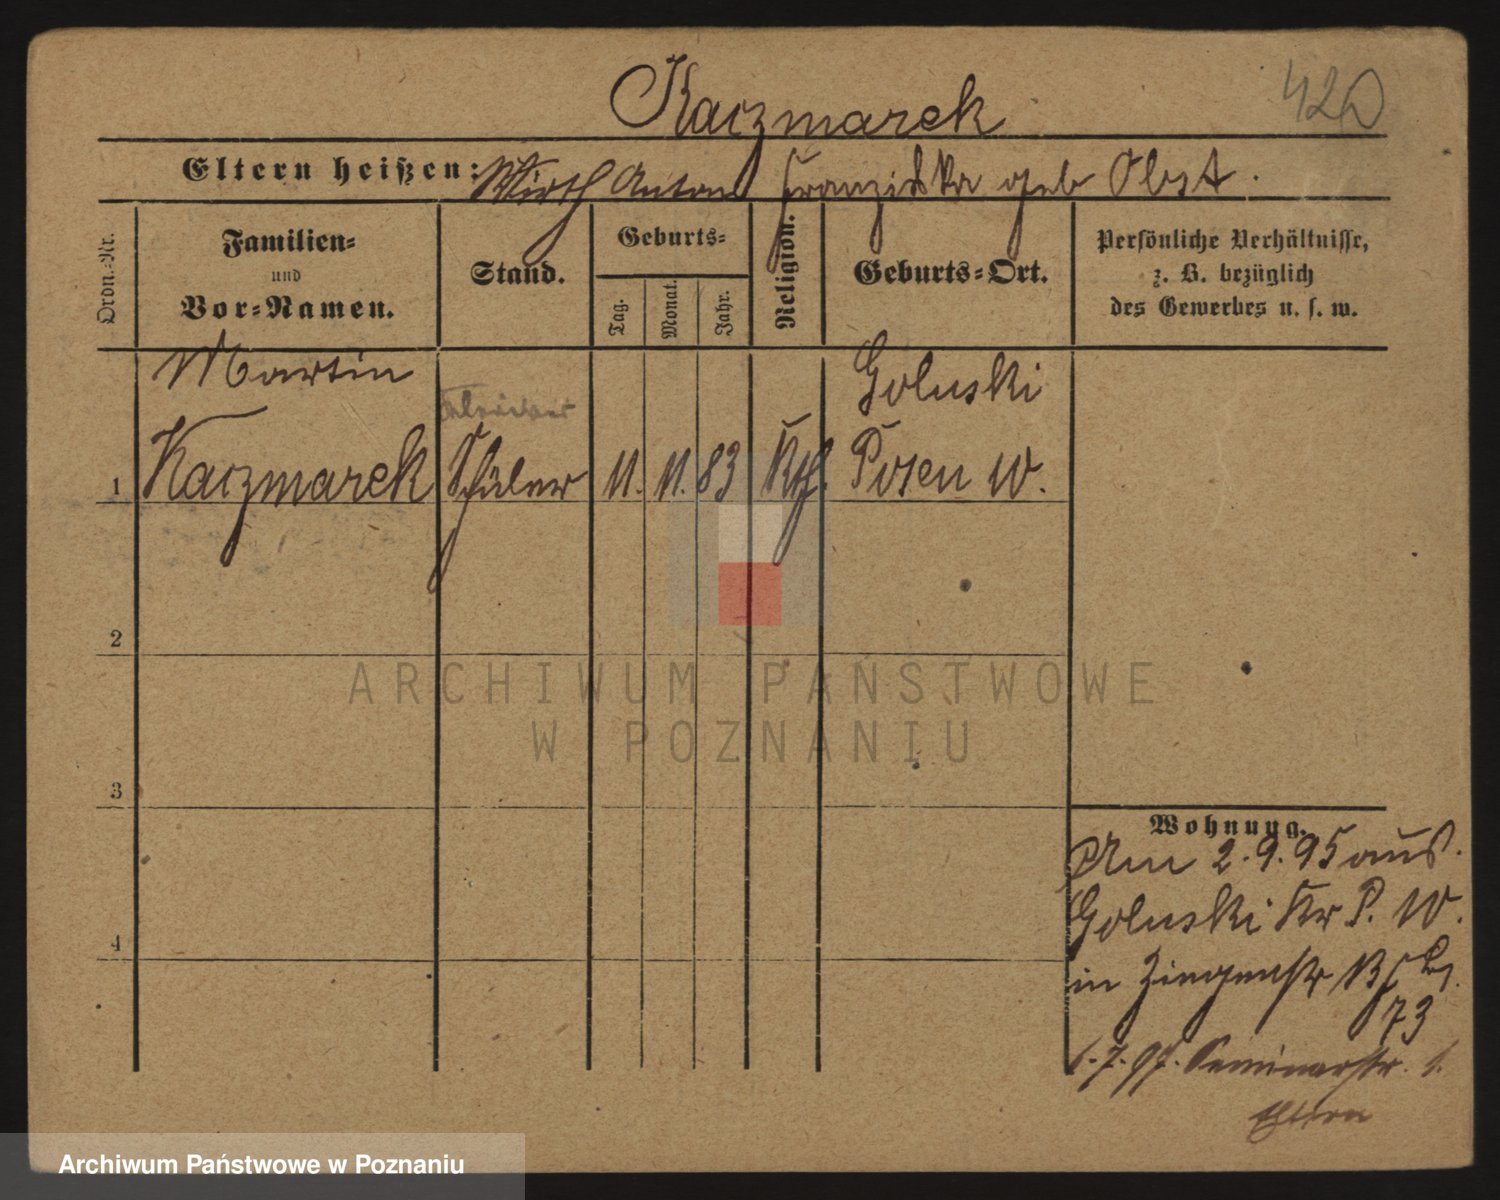 Kaczmarek
420
Eltern heißen: Wirth Anton Franziska geb Obst.
Ordn.=Nr.
Familien=
und
Vor=Namen.
Stand.
Geburts=
Tag.
Monat.
Jahr.
Religion.
Geburts=Ort.
Persönliche Verhältnisse,
z. B. bezüglich
des Gewerbes u. s. w.
Martin
Goluski
1 Kaczmarek Schüler 11. 11. 83 Kth. Posen W.
2
3
4
Wohnung.
Am 2.9.95 aus
Goluski Kr P. W.
in
73
1.7.97. Seminarstr. 1.
Eltern
ARCHIWUM PAŃSTWOWE
W POZNANIU
Archiwum Państwowe w Poznaniu